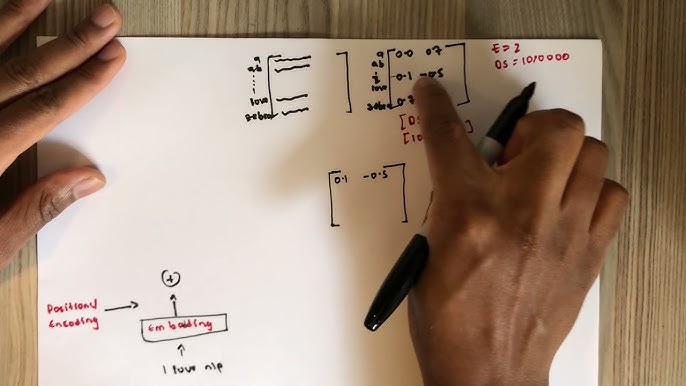 a
ab
i
love
zebra
a 0.0 0.7
ab
i 0.1 -0.5
love
zebra 0.7
E = 2
DS = 10,0000
[DS
[10
0.1 -0.5
Positional
Encoding
+
Embedding
I love nlp